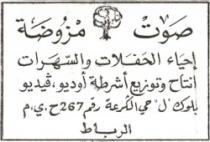 صوت مزوضة
إحياء الحفلات والسهرات
انتاح وتوزيع أشرطة أوديو، ڤيديو
بلوك "ل" حي الكرعة رقم 267 ح.ي.م
الرباط